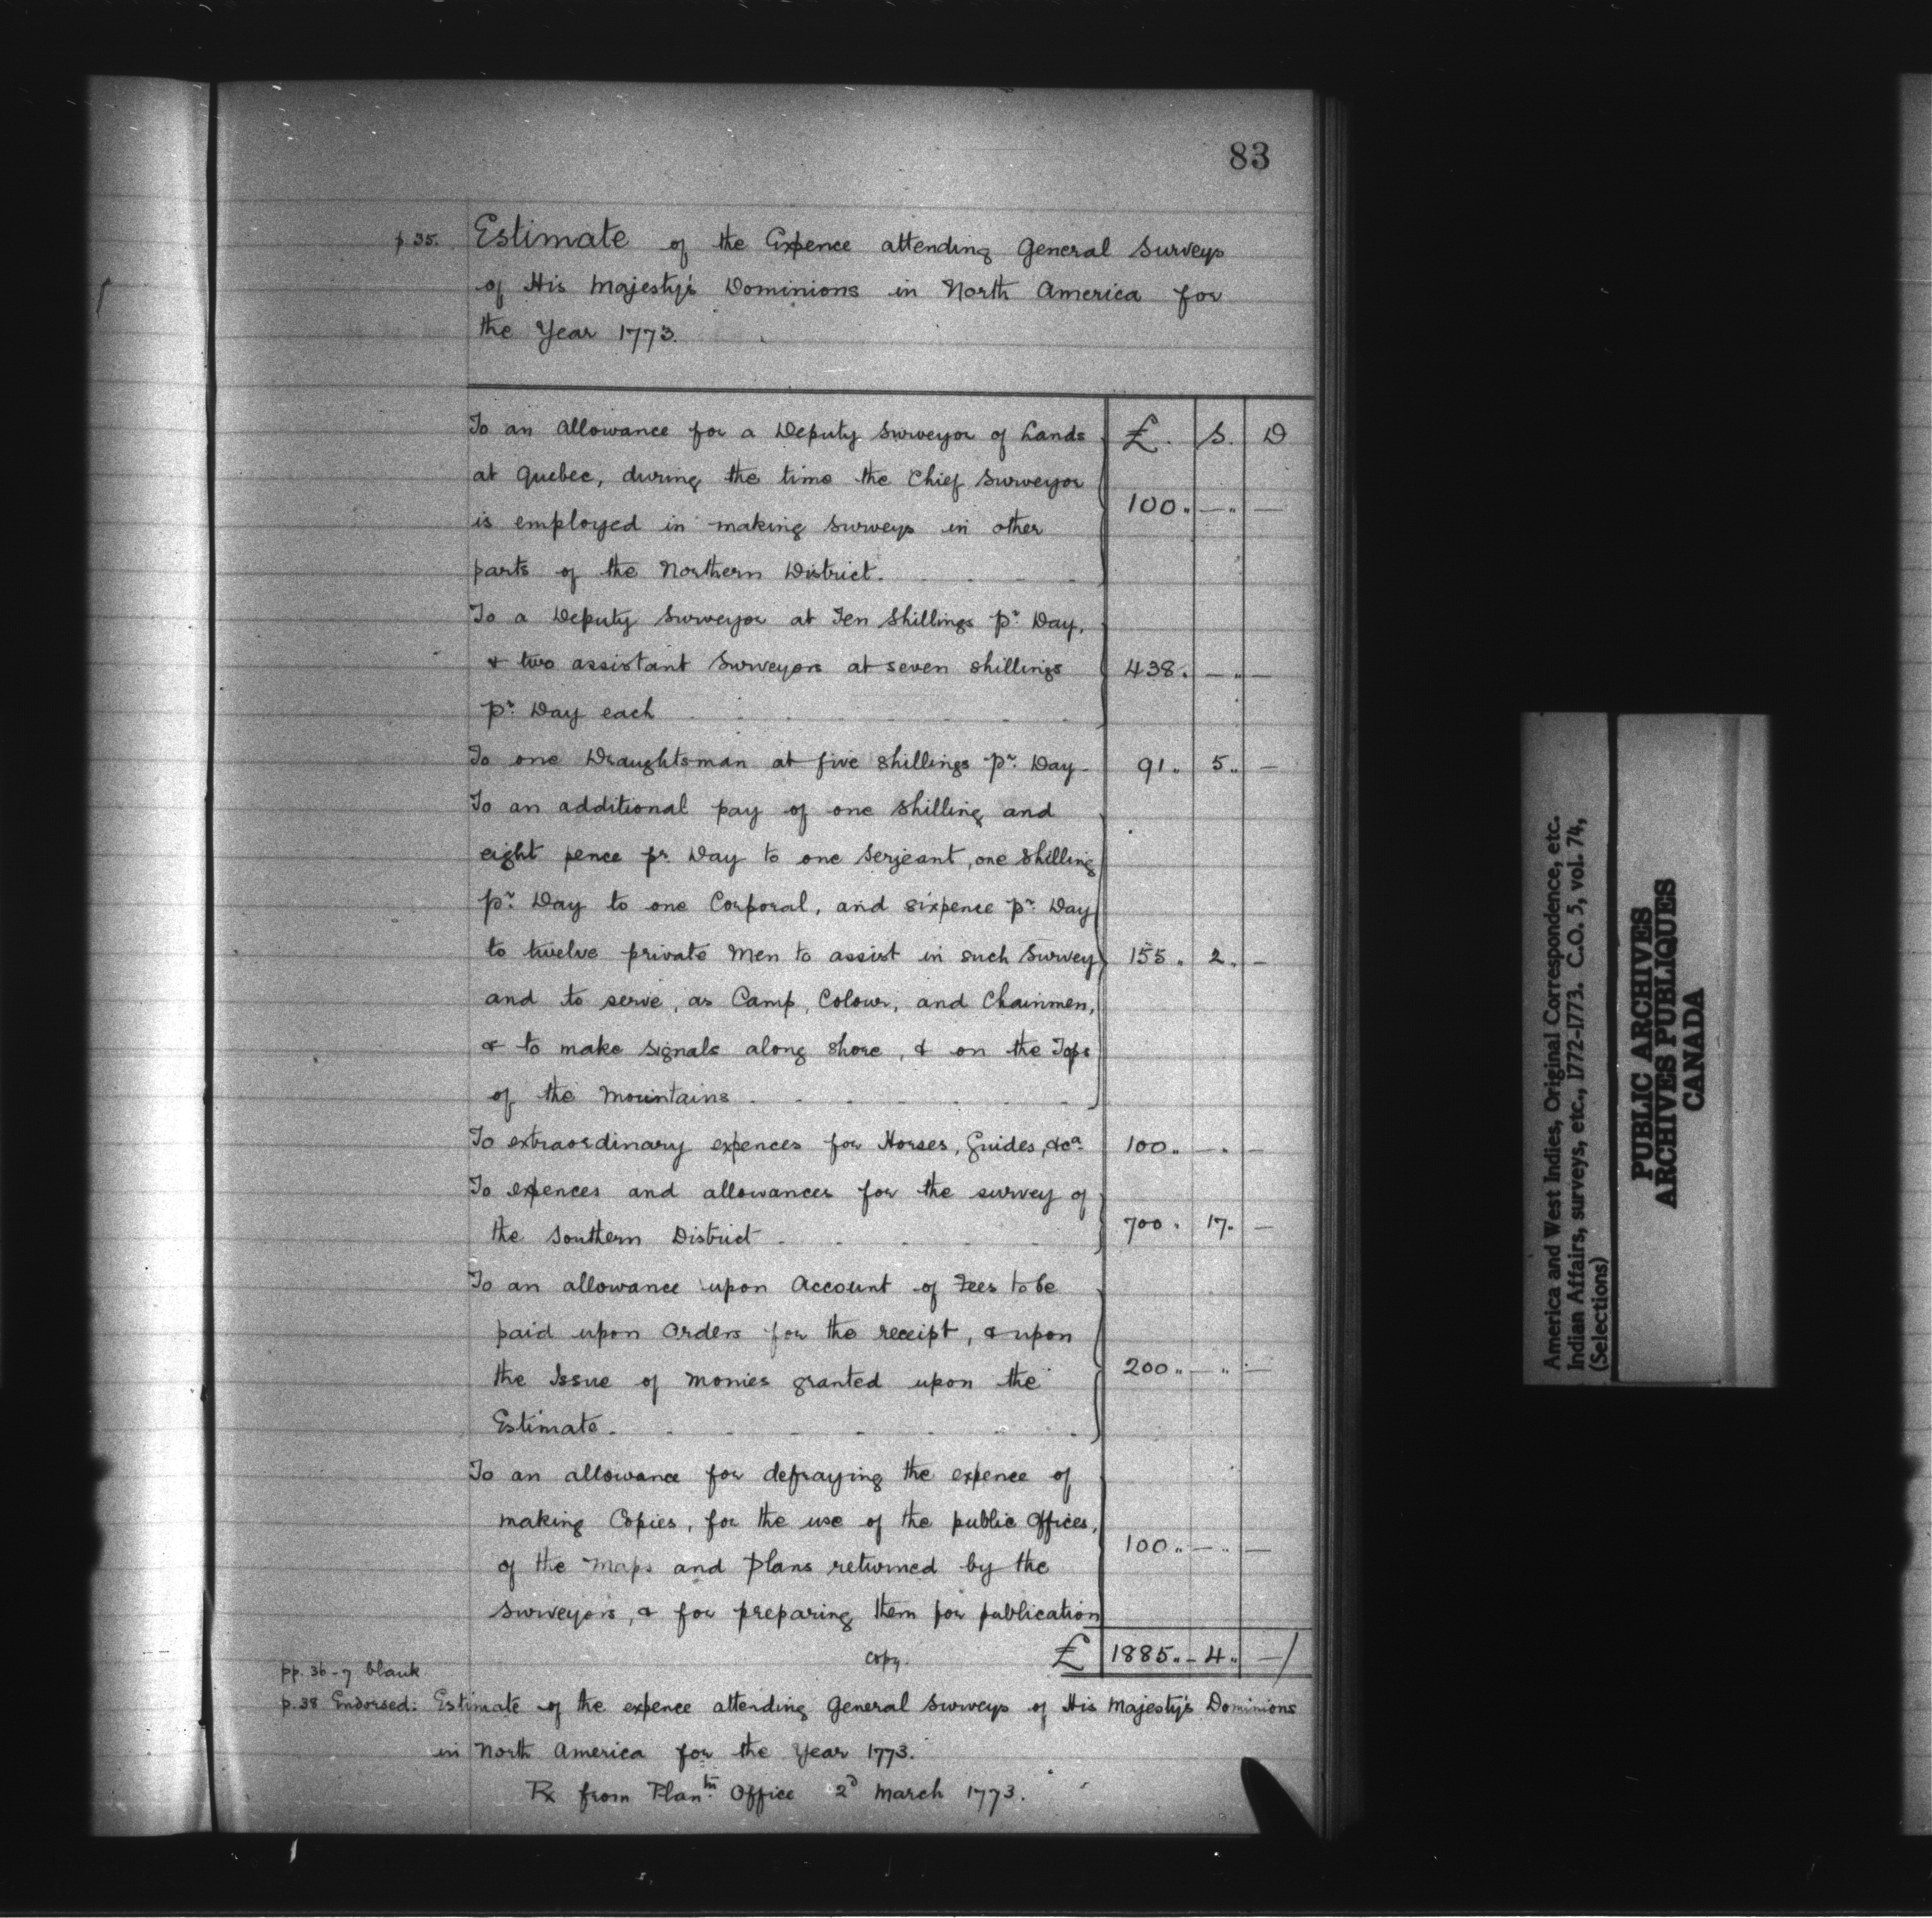 83
p. 35. Estimate of the Expence attending General Surveys
of His Majesty's Dominions in North America for
the Year 1773.
To an Allowance for a Deputy Surveyor of Lands £. S. D
at Quebec, during the time the Chief Surveyor
is employed in making Surveys in other 100. — „ —
parts of the Northern District.
To a Deputy Surveyor at Ten Shillings pr. Day,
& two assistant Surveyors at seven shillings 438. — „ —
pr. Day each
To one Draughtsman at five shillings pr. Day 91„ 5„ —
To an additional pay of one shilling and
eight pence pr. Day to one Serjeant, one shilling
pr. Day to one Corporal, and sixpence pr. Day
to twelve private Men to assist in such Survey 155„ 2„ —
and to serve, as Camp, Colour, and Chainmen,
& to make signals along shore, & on the Tops
of the Mountains
To extraordinary expences for Horses, Guides, &ca. 100„ — „ —
To expences and allowances for the survey of
the Southern District 700. 17. —
To an allowance upon Account of Fees to be
paid upon Orders for the receipt, & upon
the Issue of Monies granted upon the 200„ — „ —
Estimate.
To an allowance for defraying the expence of
making Copies, for the use of the public Offices,
of the Maps and Plans returned by the 100„ — „ —
Surveyors, & for preparing them for publication
copy. £ 1885„ – 4„ —/
pp. 36-7 blank
p. 38 Endorsed: Estimate of the expence attending General Surveys of His Majesty's Dominions
in North America for the Year 1773.
Rx from Plantn. Office 2d March 1773.
America and West Indies, Original Correspondence, etc.
Indian Affairs, surveys, etc., 1772-1773. C.O. 5, vol. 74,
(Selections)
PUBLIC ARCHIVES
ARCHIVES PUBLIQUES
CANADA